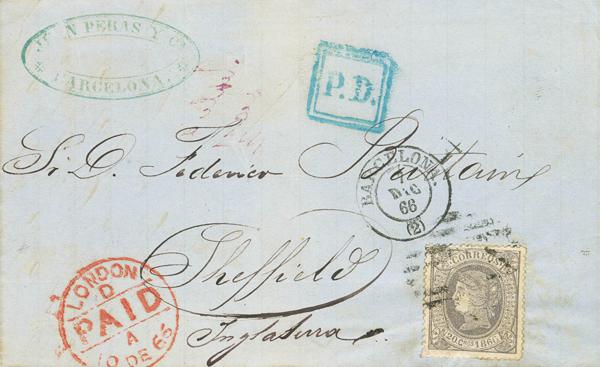 PERAS Y
BARCELONA.
P.D.
Sr. D. Federico
BARCELONA
DIC
66
(2)
Sheffield
Inglaterra
LONDON
D
PAID
A
10 DE 66
CORREOS